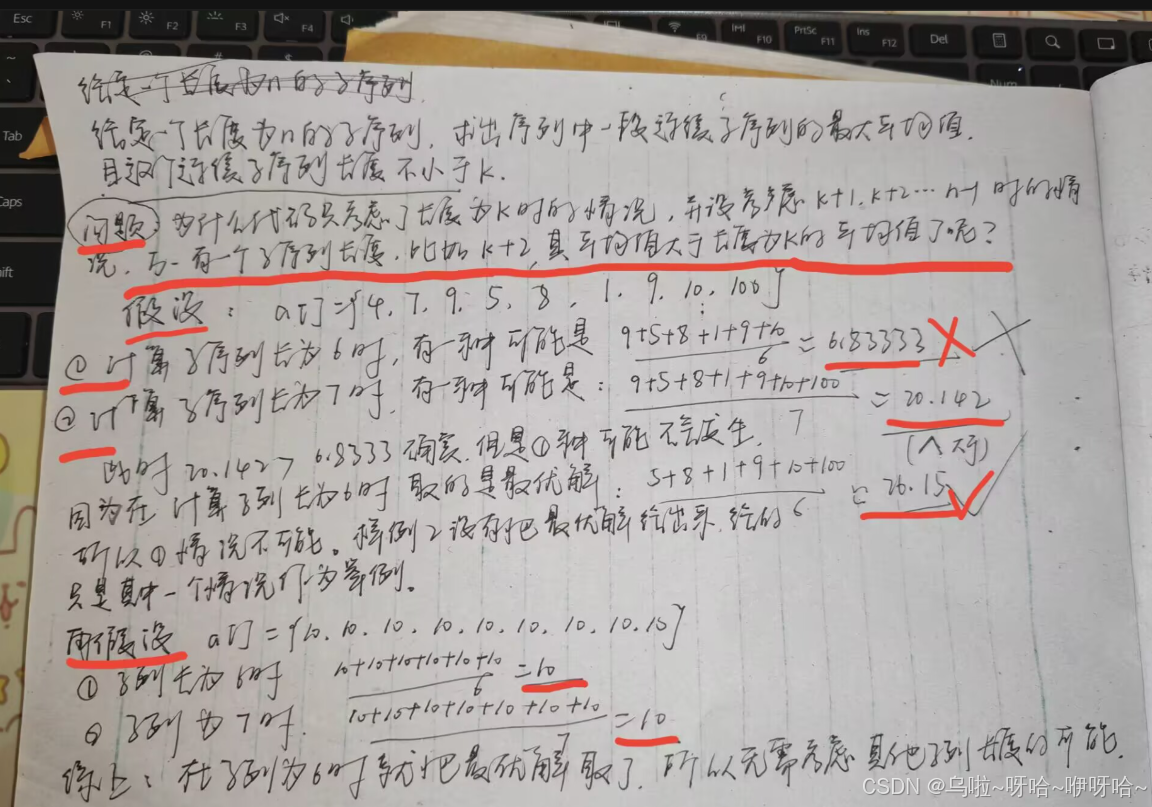 Esc F1 F2 F3 F4 F9 Iml F10 PrtSc F11 Ins F12 Del
Tab
Caps
Num
给定一个长度为n的子序列
给定一个长度为n的子序列，求出序列中一段连续子序列的最大平均值.
且这个连续子序列长度不小于k.
问题：为什么代码只考虑了长度为k时的情况，并没考虑k+1.k+2…n-1时的情
况，万一有一个子序列长度，比如k+2,其平均值大于长度为k的平均值了呢？
假设： a[]={4.7.9.5.8,1.9.10.100}
① 计算子序列长为6时，有一种可能是 9+5+8+1+9+10/6=6.83333
② 计算子序列长为7时，有一种可能是：9+5+8+1+9+10+100/7=20.142
此时20.142>6.8333确实，但是①种可能不会发生. (大于)
因为在计算子列长为6时取的是最优解：5+8+1+9+10+100/6=26.15
所以①情况不可能。样例2没有把最优解给出来，给的
只是其中一个情况作为案例。
再假设 a[]={10.10.10.10.10.10.10.10.10}
① 子列长为6时 10+10+10+10+10+10/6=10
② 子列为7时. 10+10+10+10+10+10+10/7=10
综上：在子列为6时就把最优解取了，所以无需考虑其他子列长度的可能.
CSDN @乌啦~呀哈~咿呀哈~